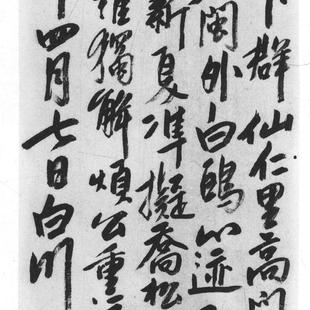 群仙仁里高閒
閫外白鷗心迹
新夏準擬喬松
獨解煩公重
四月七日白川